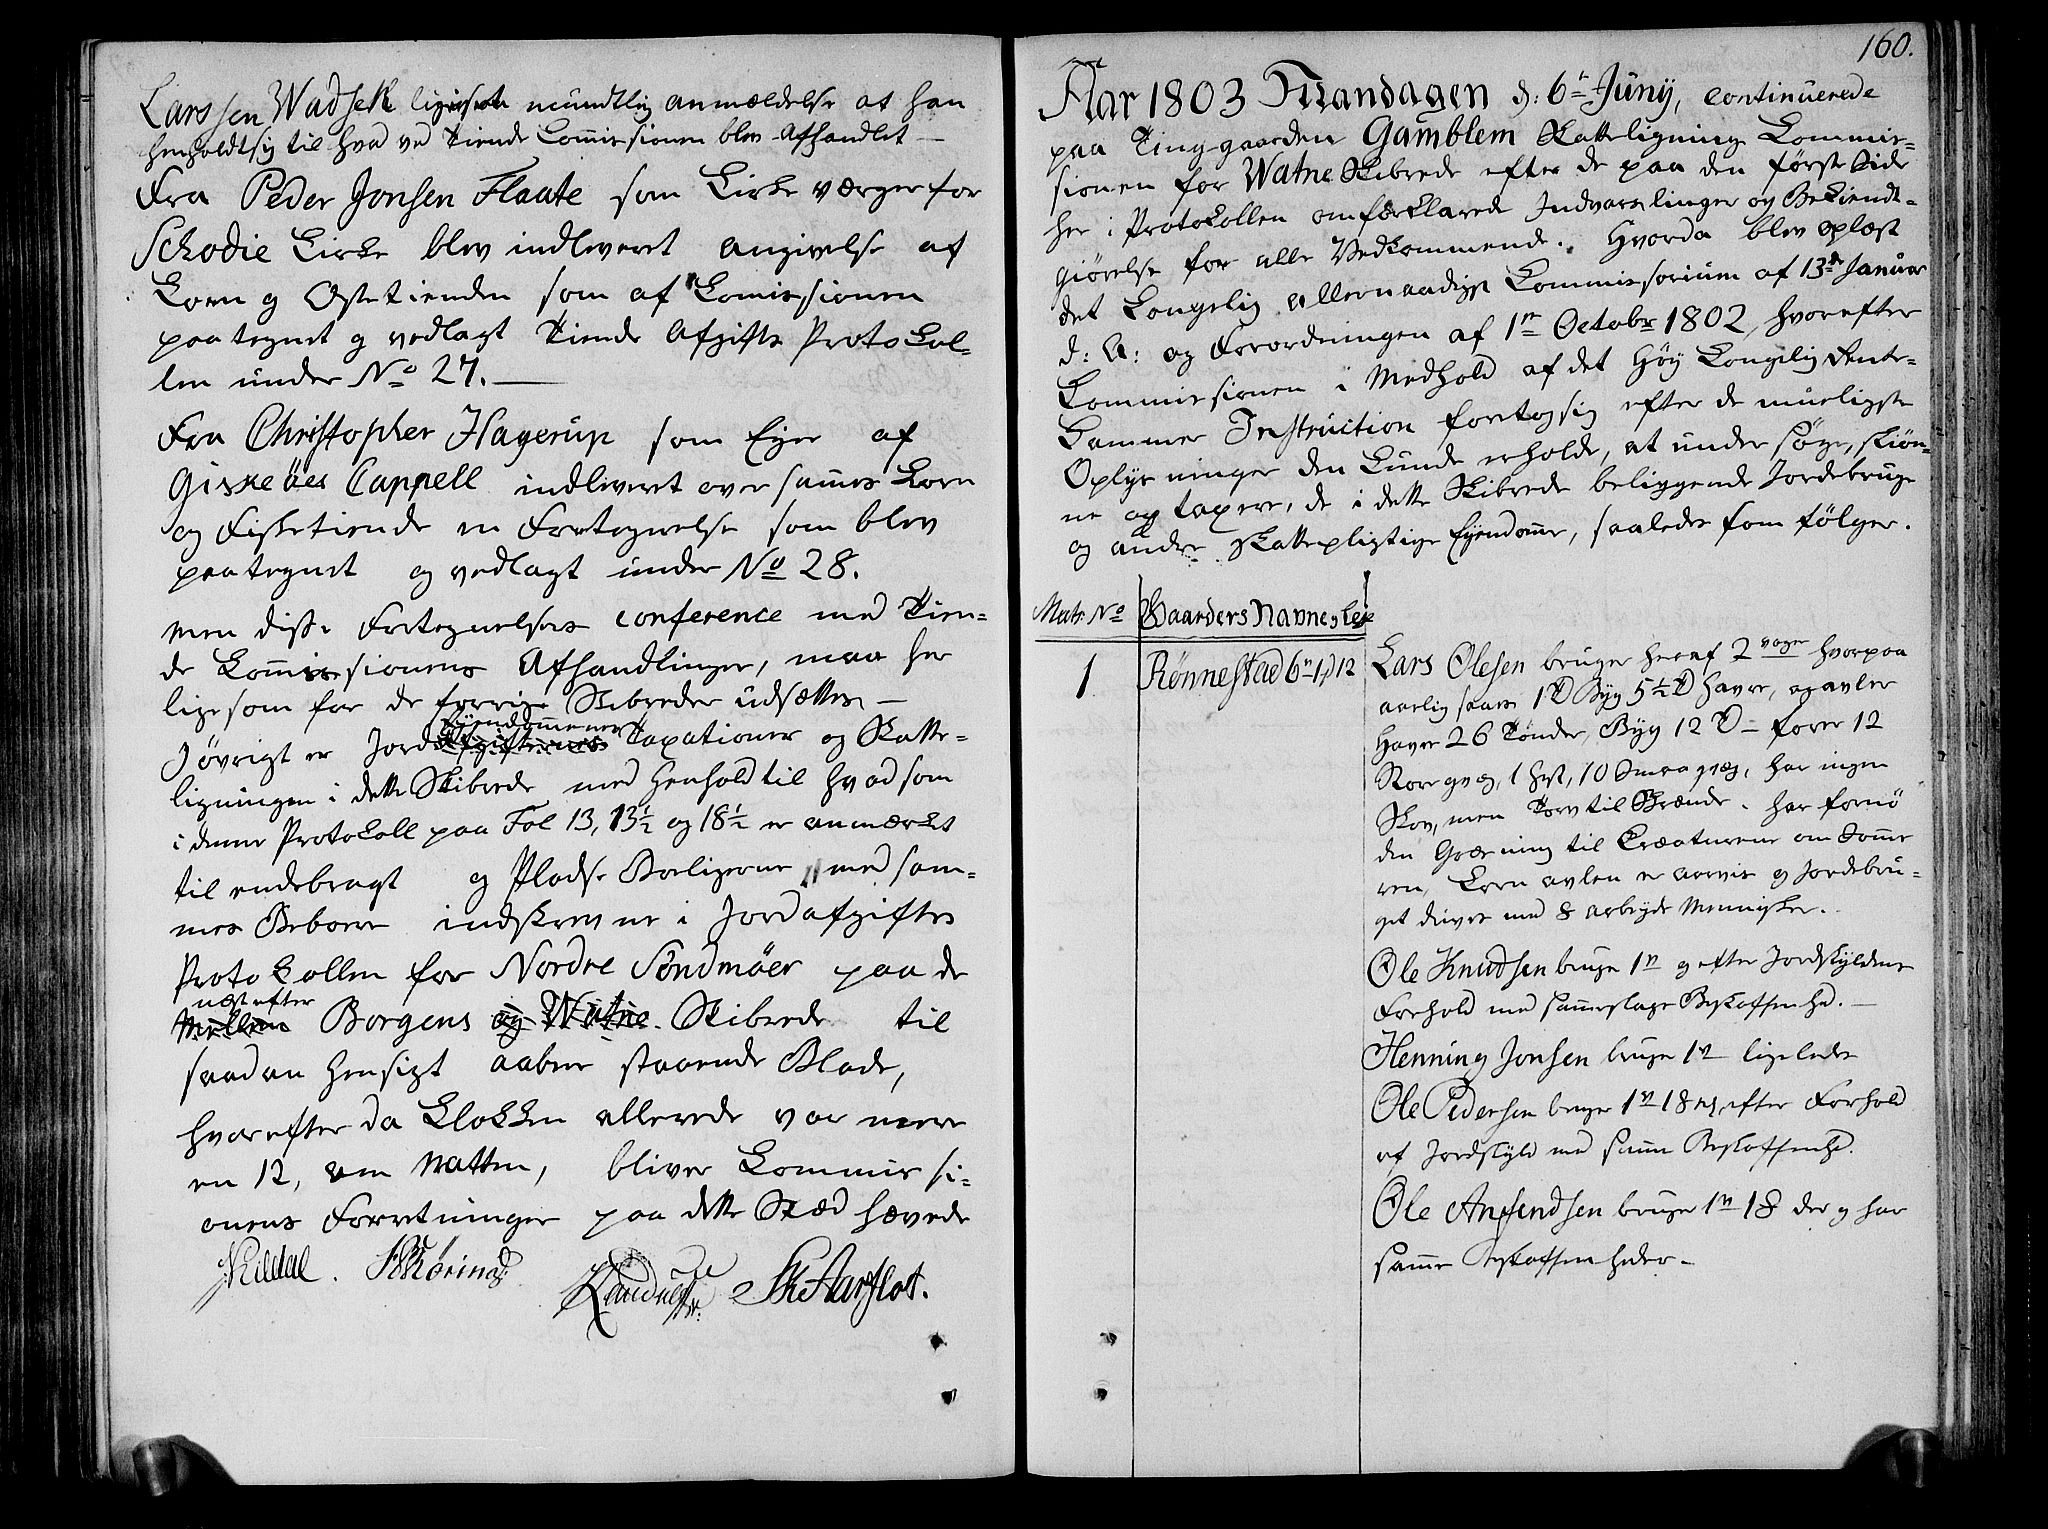 Larssen Wadsek mundtlig anmældelse at han
henholdt sig til hvad ved Tiende Commissionen blev Afhandlet —
Fra Peder Jonsen Flaate som Kirke værger for
Schodie Kirke blev indleveret angivelse af
Korn og Ostetienden som af Comissionen
paategnet og vedlagt Tiende Afgifts Protokol-
len under No 27. —
Fra Christopher Hagerup som Eyer af
Giskeöes Cappell indleveret over sammes Korn
og Fisketiende en Fortegnelse som blev
paategnet og vedlagt under No 28.
men disse Fortegnelsers conference med Tien-
de Commissionens Afhandlinger, maa her
ligesom for de forrige Skibreder udsættes —
I øvrigt er Jord Eyendommenes Taxationer og Skatte-
ligningen i dette Skibrede med Henhold til hvad som
i denne Protokoll paa Fol 13, 13½ og 18½ er anmærket
til endebragt og Pladse Boeligerne med sam-
mes Beboere indskrevne i Jordafgifts
Protokollen for Nordre Söndmöer paa de
næst efter Borgens Skibrede til
saadan Hensigt aabne staaende Blade,
hvorefter da Klokken allerede var mere
en 12, om Natten, bliver Commissi-
onens Forretninger paa dette Stæd hævede
Kildal. Aarflot.
160.
Aar 1803 Mandagen d: 6te Juny, continuerede
paa Ting-gaarden Gamblem Skatteligning Commis-
sionen for Watne Skibrede efter de paa den første Side
her i Protokollen omforklarede Indvarslinger og Bekiendt-
giørelse for alle Vedkommende. Hvorda blev oplæst
det Kongelig allernaadigst Commissorium af 13de Januar
d: A: og Forordningen af 1te Octobr 1802, hvorefter
Commissionen i Medhold af det Høy Kongelig Rente-
Kammer Instruction foretog sig efter de mueligste
Oplysninger den kunde erholde, at undersøge, skiøn-
ne og taxere, de i dette Skibrede beliggende Jordebruge
og andre skattepligtige Eyendomme, saaledes som følger.
Matr. No Gaardens Navne og Leje
1. Rønnestad 6 v 1 p 12
Lars Olesen bruger heraf 2 voger hvorpaa
aarlig saaes 1 T Byg 5½ T Havre, og avler
Havre 26 Tønder, Byg 12 T — foder 12
Store qvæg, 1 Hest, 10 Smaa qvæg, har ingen
Skov, men Torv til Brænde. har fornø
den Græsning til Creaturene om Somme
ren, Korn avlen er aarvis og Jordebru-
get drives med 8 arbeyds Mennisker.
Ole Knudsen bruger 1 v og efter Jordskyldens
Forhold med sammeslags Beskaffenhed. —
Henning Jonsen bruger 1 v ligeledes
Ole Pedersen bruger 1 v 18 efter Forhold
af Jordskyld med samme Beskaffenhed.
Ole Amundsen bruger 1 v 18 og har
samme Beskaffenheder —